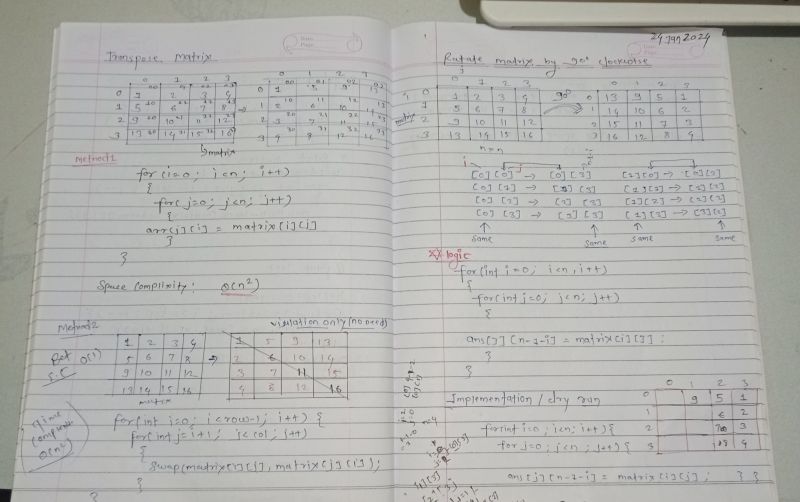 Transpose Matrix
0 1 2 3
0 1 2 3 4
1 5 6 7 8
2 9 10 11 12
3 13 14 15 16
matrix
Method1
for (i=0; i<n; i++)
{
for( j=0; j<n; j++)
{
arr[j][i] = matrix[i][j]
}
}
Space Complixity: O(n²)
Method2
visulation only (no need)
1 2 3 4
5 6 7 8
9 10 11 12
13 14 15 16
matrix
1 5 9 13
2 6 10 14
3 7 11 15
4 8 12 16
O(1)
S.C
Time
O(n²)
for(int i=0; i<row-1; i++) {
for(int j=i+1; j<col; j++)
{
swap(matrix[i][j], matrix[j][i]);
}
}
24 Jan 2024
Rotate matrix by 90° clockwise
0 1 2 3
0 1 2 3 4
1 5 6 7 8
2 9 10 11 12
3 13 14 15 16
matrix
n×n
90°
0 1 2 3
0 13 9 5 1
1 14 10 6 2
2 15 11 7 3
3 16 12 8 4
i j
[0][0] → [0][3] [1][0] → [0][2]
[0][1] → [1][3] [1][1] → [1][2]
[0][2] → [2][3] [1][2] → [2][2]
[0][3] → [3][3] [1][3] → [3][2]
same same same same
logic
for(int i=0; i<n, i++)
{
for(int j=0; j<n; j++)
{
ans[j][n-1-i] = matrix[i][j];
}
}
Implementation / dry run
0 1 2 3
0 9 5 1
1 6 2
2 3
3 4
for(int i=0; i<n; i++) {
for j=0; j<n; j++) {
ans[j][n-1-i] = matrix[i][j]; } }
n=4